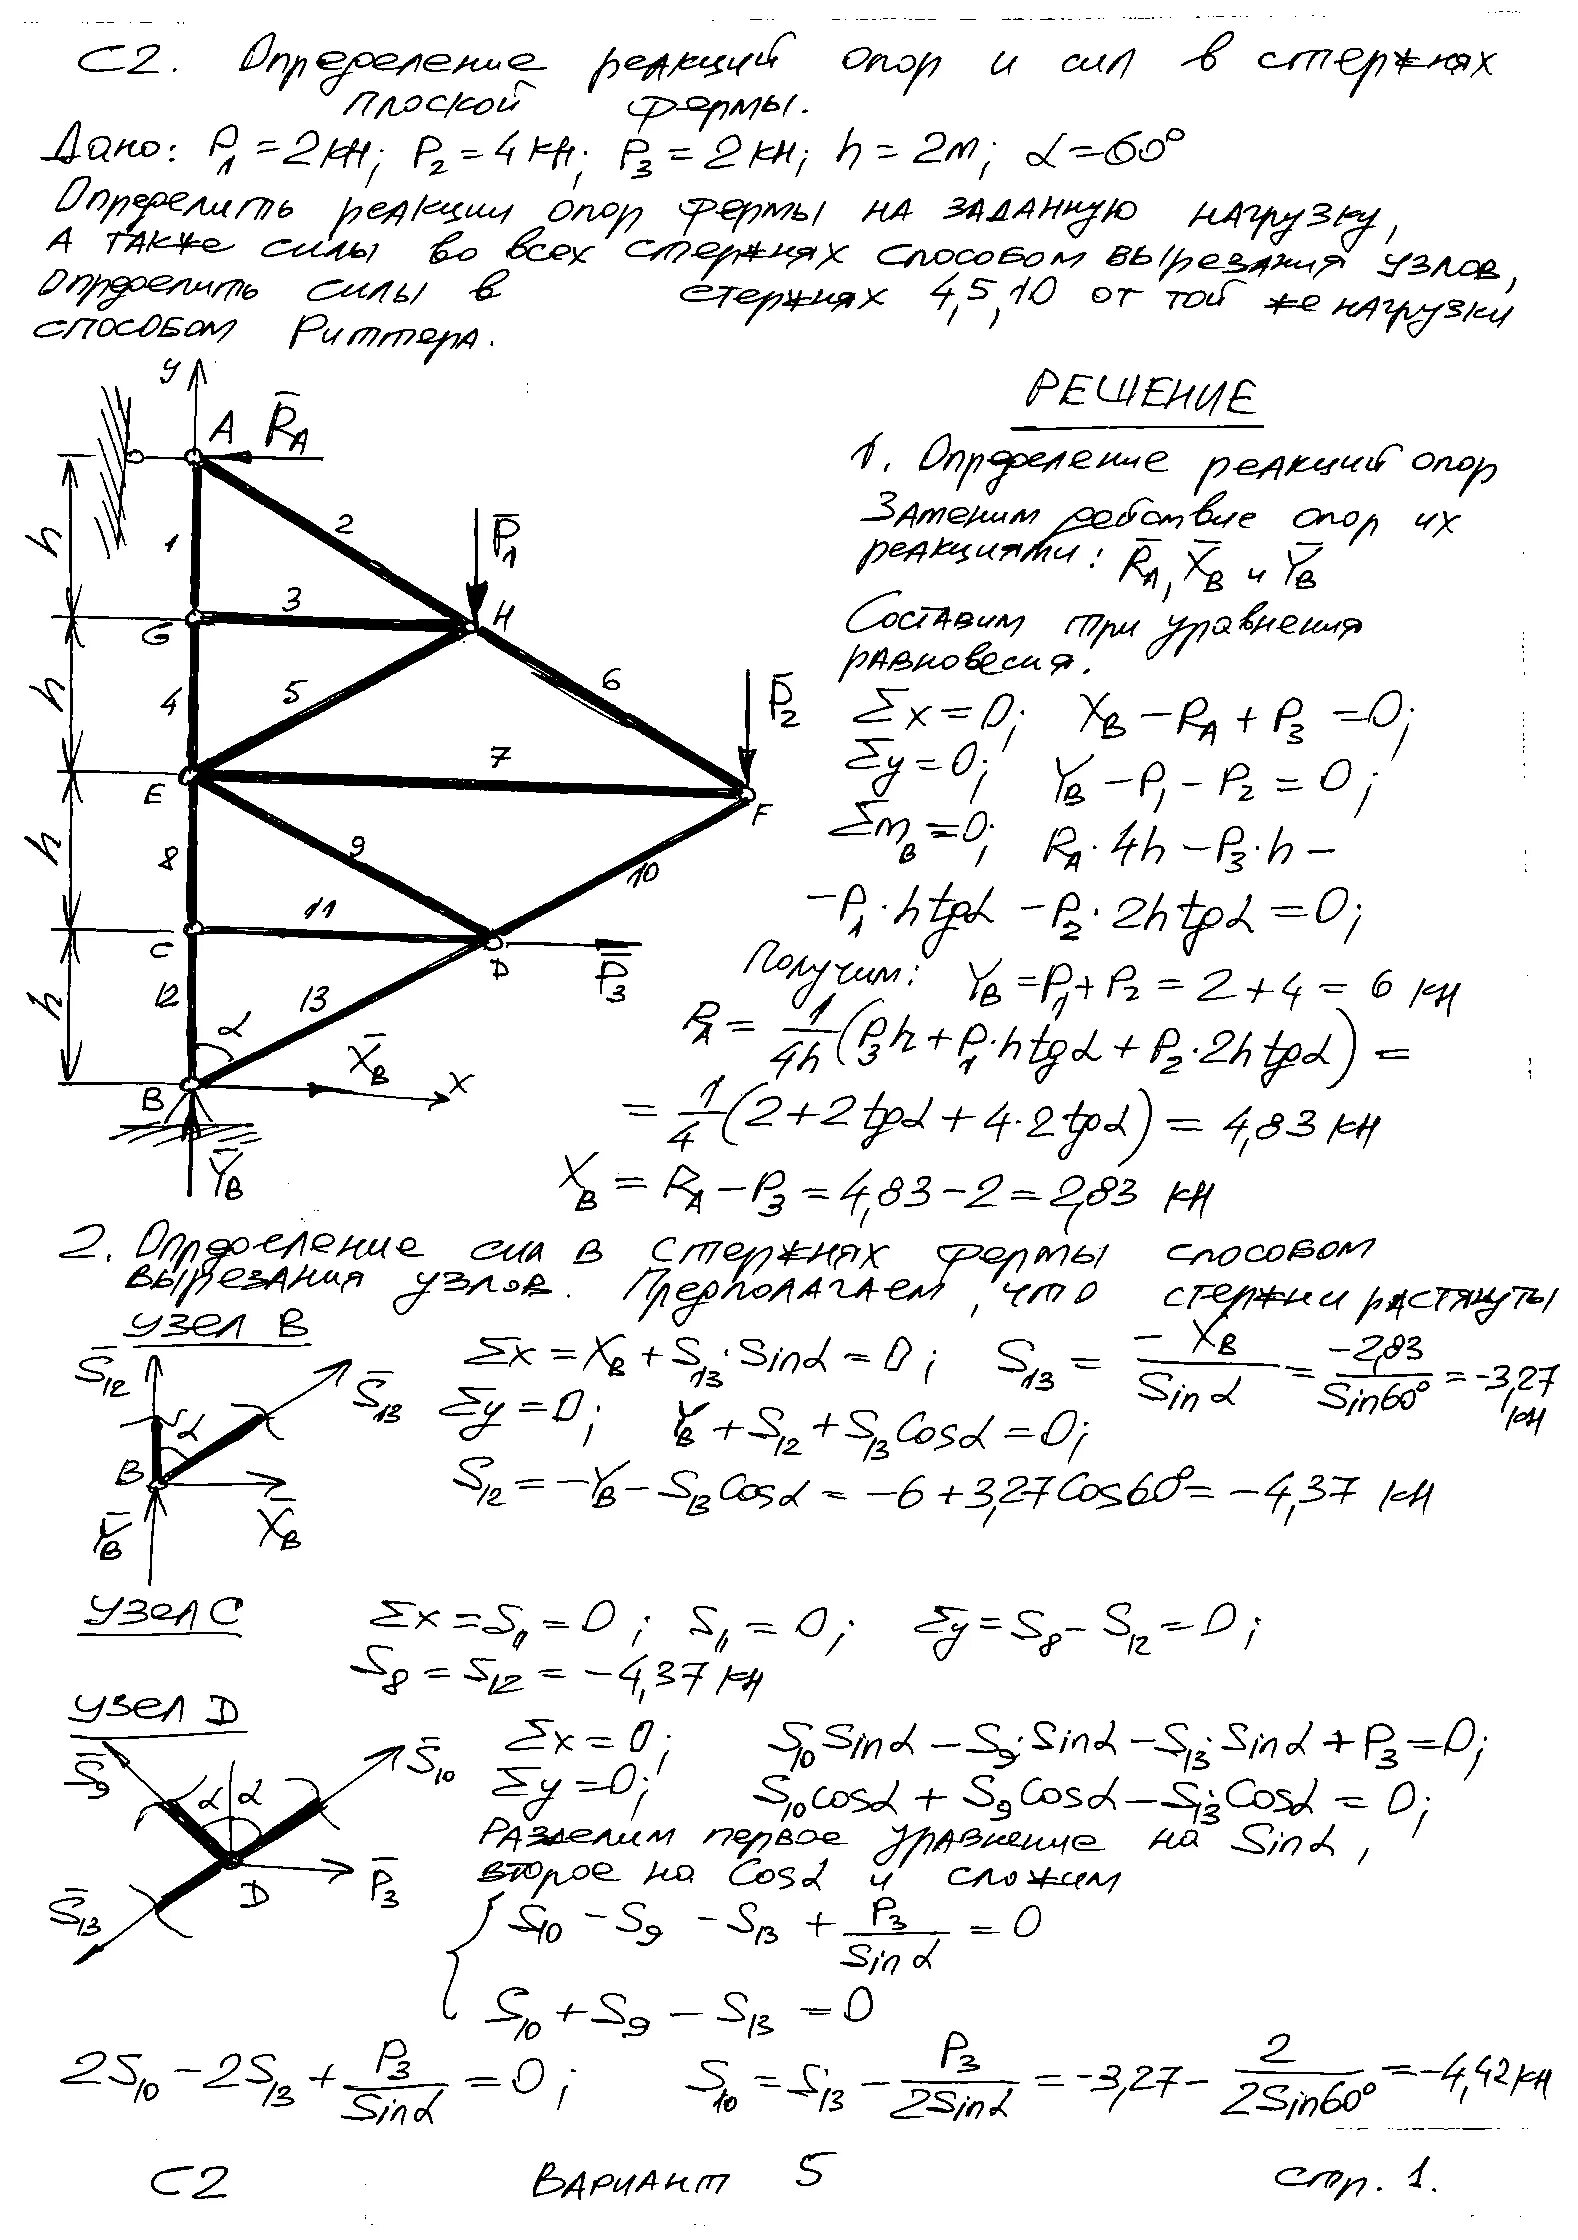 С2. Определение реакций опор и сил в стержнях
плоской фермы.
Дано: P₁ = 2 кн; P₂ = 4 кн; P₃ = 2 кн; h = 2 м; α = 60°
Определить реакции опор фермы на заданную нагрузку,
а также силы во всех стержнях способом вырезания узлов,
определить силы в стержнях 4, 5, 10 от той же нагрузки
способом Риттера.
РЕШЕНИЕ
y
A
R̄_A
h
1
2
P̄₁
3
H
G
h
4
5
6
P̄₂
7
E
F
h
8
9
10
11
C
D
P̄₃
h
12
13
α
X̄_B
x
B
Ȳ_B
1. Определение реакций опор
Заменим действие опор их
реакциями: R̄_A, X̄_B и Ȳ_B
Составим три уравнения
равновесия.
Σx = 0; X_B − R_A + P₃ = 0;
Σy = 0; Y_B − P₁ − P₂ = 0;
Σm_B = 0; R_A · 4h − P₃ · h −
− P₁ · h tgα − P₂ · 2h tgα = 0;
Получим: Y_B = P₁ + P₂ = 2 + 4 = 6 кн
R_A = 1/4h (P₃h + P₁ · h tgα + P₂ · 2h tgα) =
= 1/4 (2 + 2 tgα + 4 · 2 tgα) = 4,83 кн
X_B = R_A − P₃ = 4,83 − 2 = 2,83 кн
2. Определение сил в стержнях фермы способом
вырезания узлов. Предполагаем, что стержни растянуты
УЗЕЛ B
S̄₁₂
S̄₁₃
α
B
Ȳ_B
X̄_B
Σx = X_B + S₁₃ · Sinα = 0; S₁₃ = −X_B/Sinα = −2,83/Sin60° = −3,27 кн
Σy = 0; Y_B + S₁₂ + S₁₃Cosα = 0;
S₁₂ = −Y_B − S₁₃Cosα = −6 + 3,27Cos60° = −4,37 кн
УЗЕЛ C
Σx = S₁₁ = 0; S₁₁ = 0; Σy = S₈ − S₁₂ = 0;
S₈ = S₁₂ = −4,37 кн
УЗЕЛ D
S̄₉
S̄₁₀
α α
D
P̄₃
S̄₁₃
Σx = 0; S₁₀Sinα − S₉ · Sinα − S₁₃ · Sinα + P₃ = 0;
Σy = 0; S₁₀cosα + S₉Cosα − S₁₃Cosα = 0;
Разделим первое уравнение на Sinα,
второе на Cosα и сложим
S₁₀ − S₉ − S₁₃ + P₃/Sinα = 0
S₁₀ + S₉ − S₁₃ = 0
2S₁₀ − 2S₁₃ + P₃/Sinα = 0; S₁₀ = S₁₃ − P₃/2Sinα = −3,27 − 2/2Sin60° = −4,42 кн
С2 ВАРИАНТ 5 стр. 1.